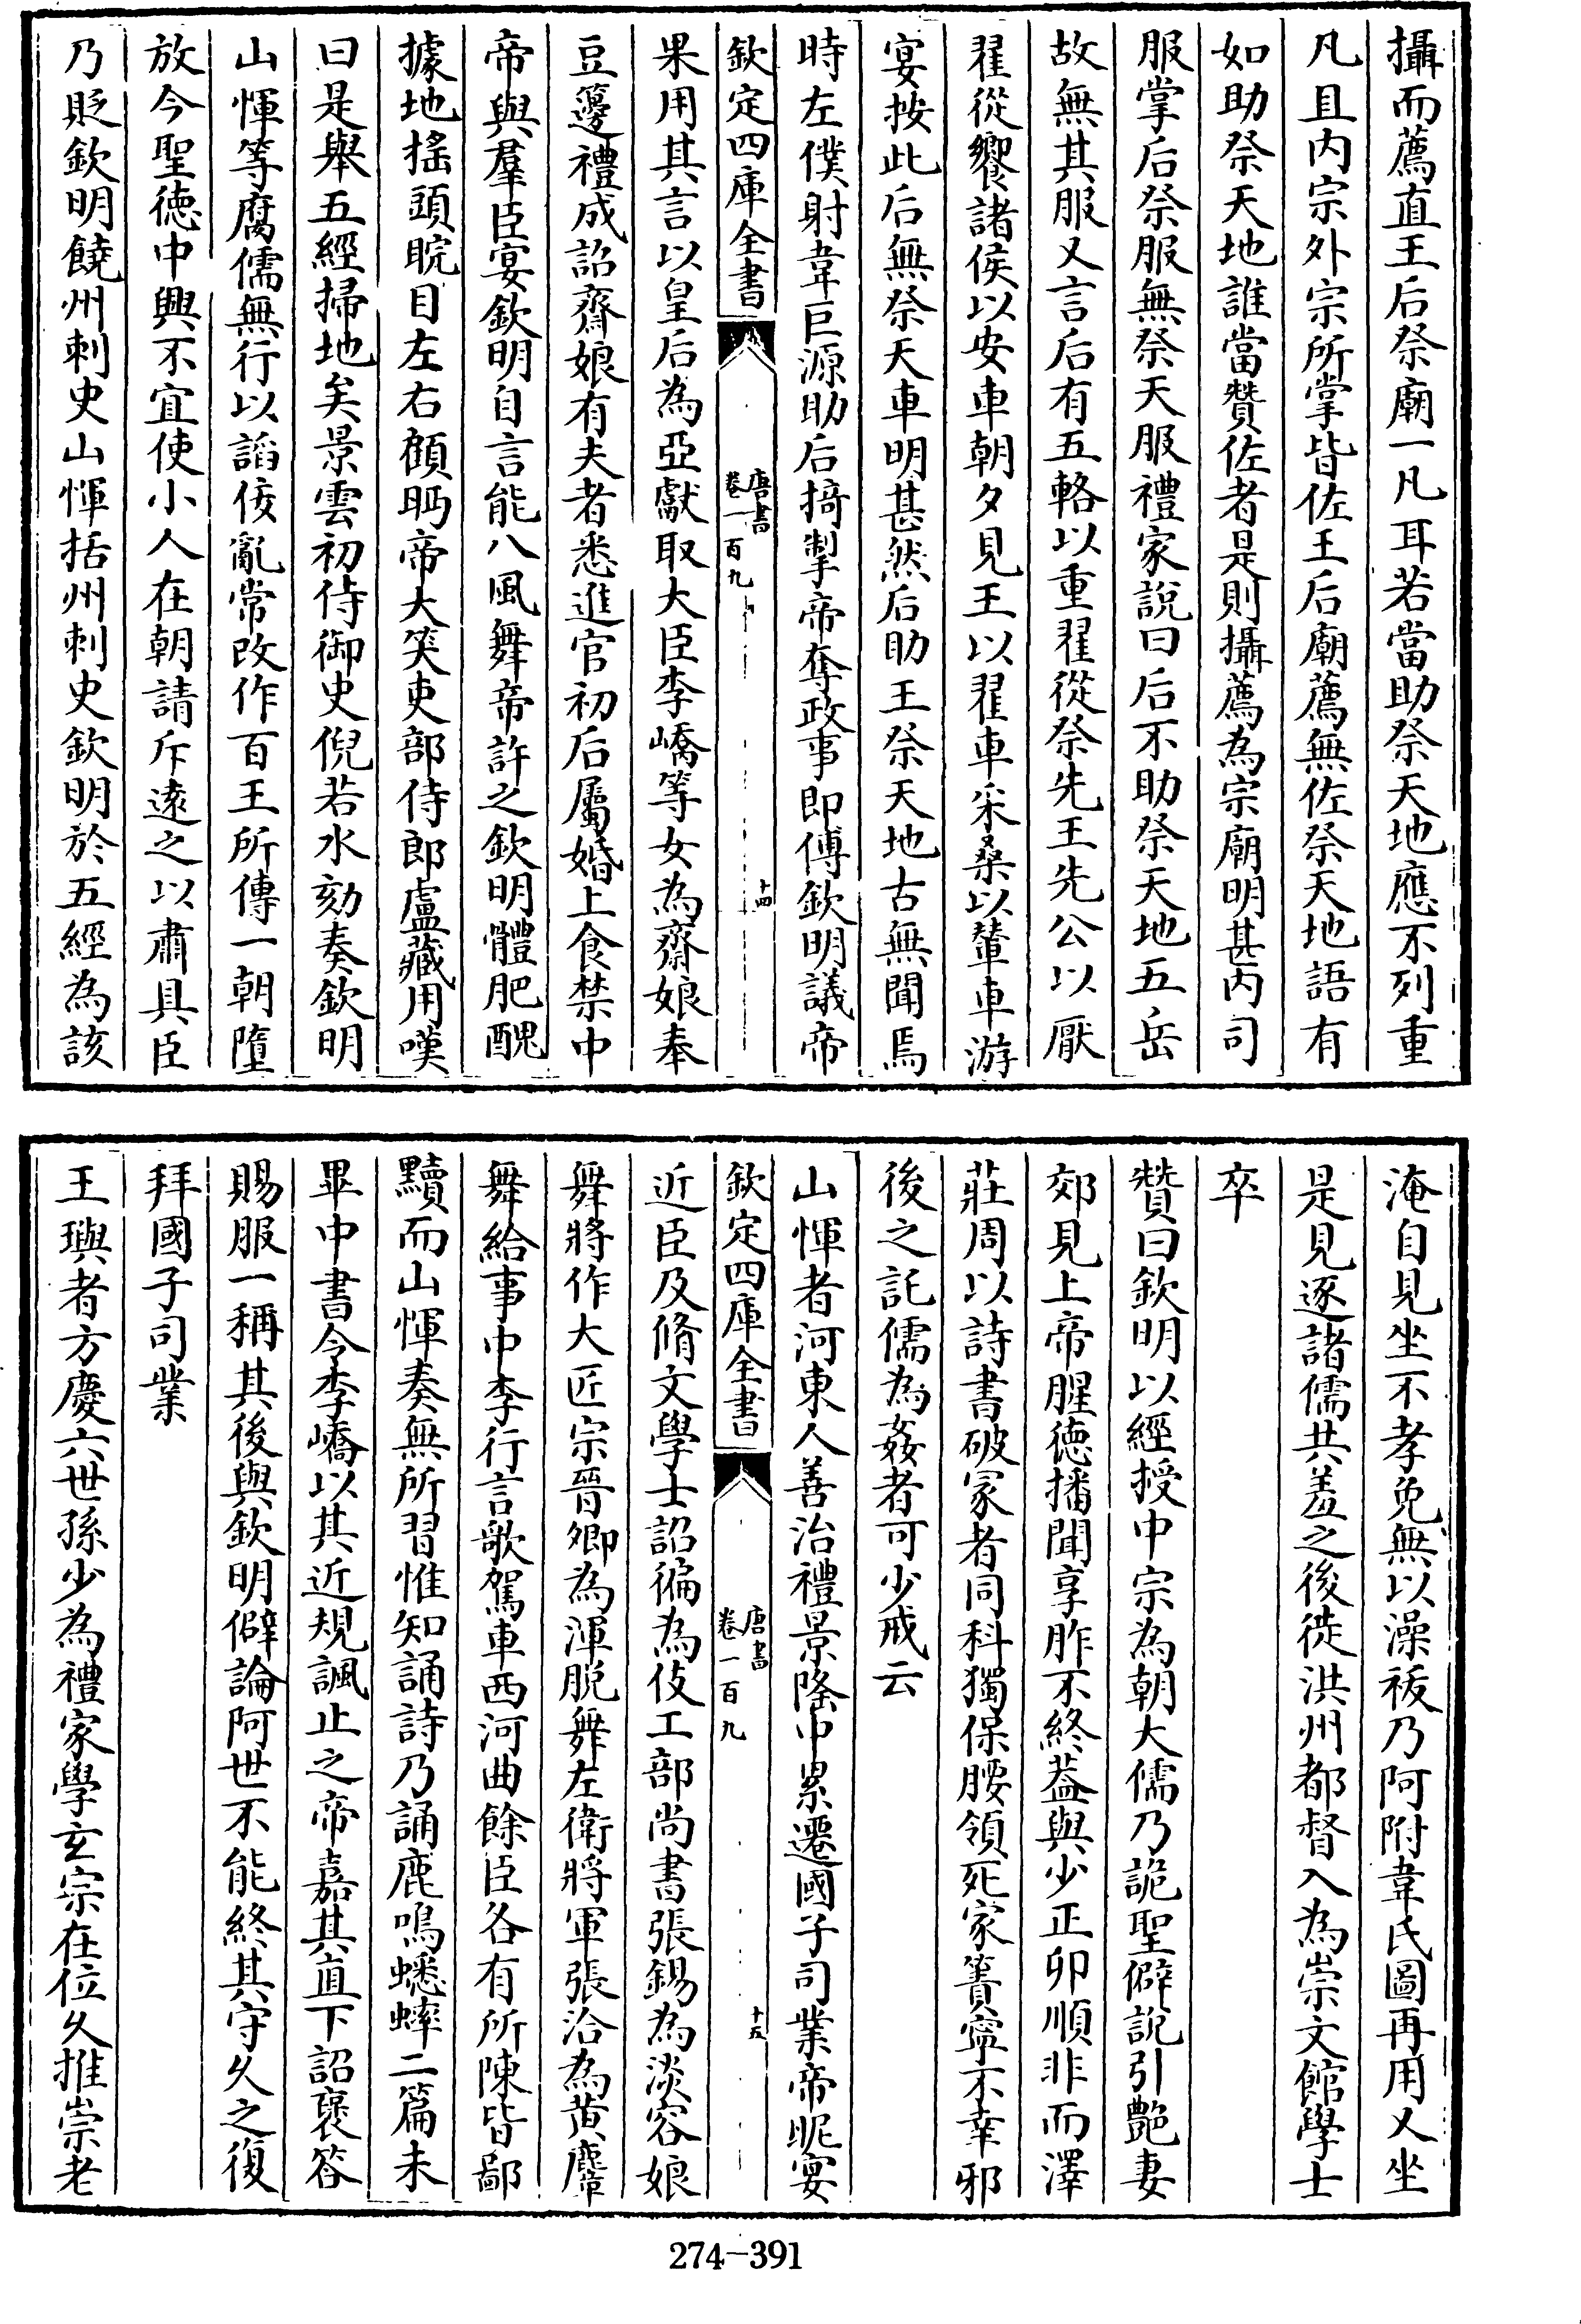 攝而薦直王后祭廟一凡耳若當助祭天地應不列重
凡且内宗外宗所掌皆佐王后廟薦無佐祭天地語有
如助祭天地誰當贊佐者是則攝薦為宗廟明甚内司
服掌后祭服無祭天服禮家說曰后不助祭天地五岳
故無其服又言后有五輅以重翟從祭先王先公以厭
翟從饗諸侯以安車朝夕見王以翟車采桑以輦車游
宴按此后無祭天車明甚然后助王祭天地古無聞焉
時左僕射韋巨源助后掎掣帝奪政事即傅欽明議帝
欽定四庫全書
唐書
卷一百九
十四
果用其言以皇后為亞獻取大臣李嶠等女為齋娘奉
豆籩禮成詔齋娘有夫者悉進官初后屬婚上食禁中
帝與羣臣宴欽明自言能八風舞帝許之欽明體肥醜
據地搖頭睆目左右顧眄帝大笑吏部侍郎盧藏用嘆
曰是舉五經掃地矣景雲初侍御史倪若水劾奏欽明
山惲等腐儒無行以諂佞亂常改作百王所傳一朝墮
放今聖徳中興不宜使小人在朝請斥逺之以肅具臣
乃貶欽明饒州刺史山惲括州刺史欽明於五經為該
淹自見坐不孝免無以澡祓乃阿附韋氏圖再用又坐
是見逐諸儒共羞之後徙洪州都督入為崇文館學士
卒
贊曰欽明以經授中宗為朝大儒乃詭聖僻說引艶妻
郊見上帝腥徳播聞享胙不終葢與少正卯順非而澤
莊周以詩書破冢者同科獨保腰領死家簀寧不幸邪
後之託儒為姦者可少戒云
山惲者河東人善治禮景隆中累遷國子司業帝昵宴
欽定四庫全書
唐書
卷一百九
十五
近臣及脩文學士詔徧為伎工部尚書張錫為淡容娘
舞將作大匠宗晉卿為渾脱舞左衛將軍張洽為黄麞
舞給事中李行言歌駕車西河曲餘臣各有所陳皆鄙
黷而山惲奏無所習惟知誦詩乃誦鹿鳴蟋蟀二篇未
畢中書令李嶠以其近規諷止之帝嘉其直下詔褒答
賜服一稱其後與欽明僻論阿世不能終其守久之復
拜國子司業
王璵者方慶六世孫少為禮家學玄宗在位久推崇老
274-391